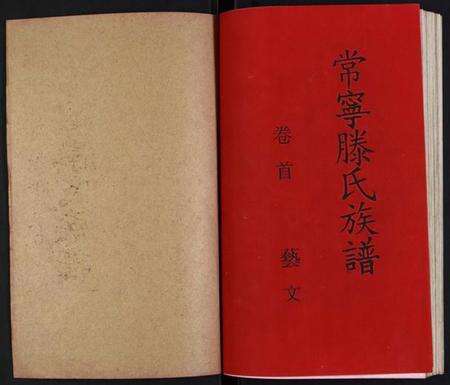 常寧滕氏族譜
卷首 藝文